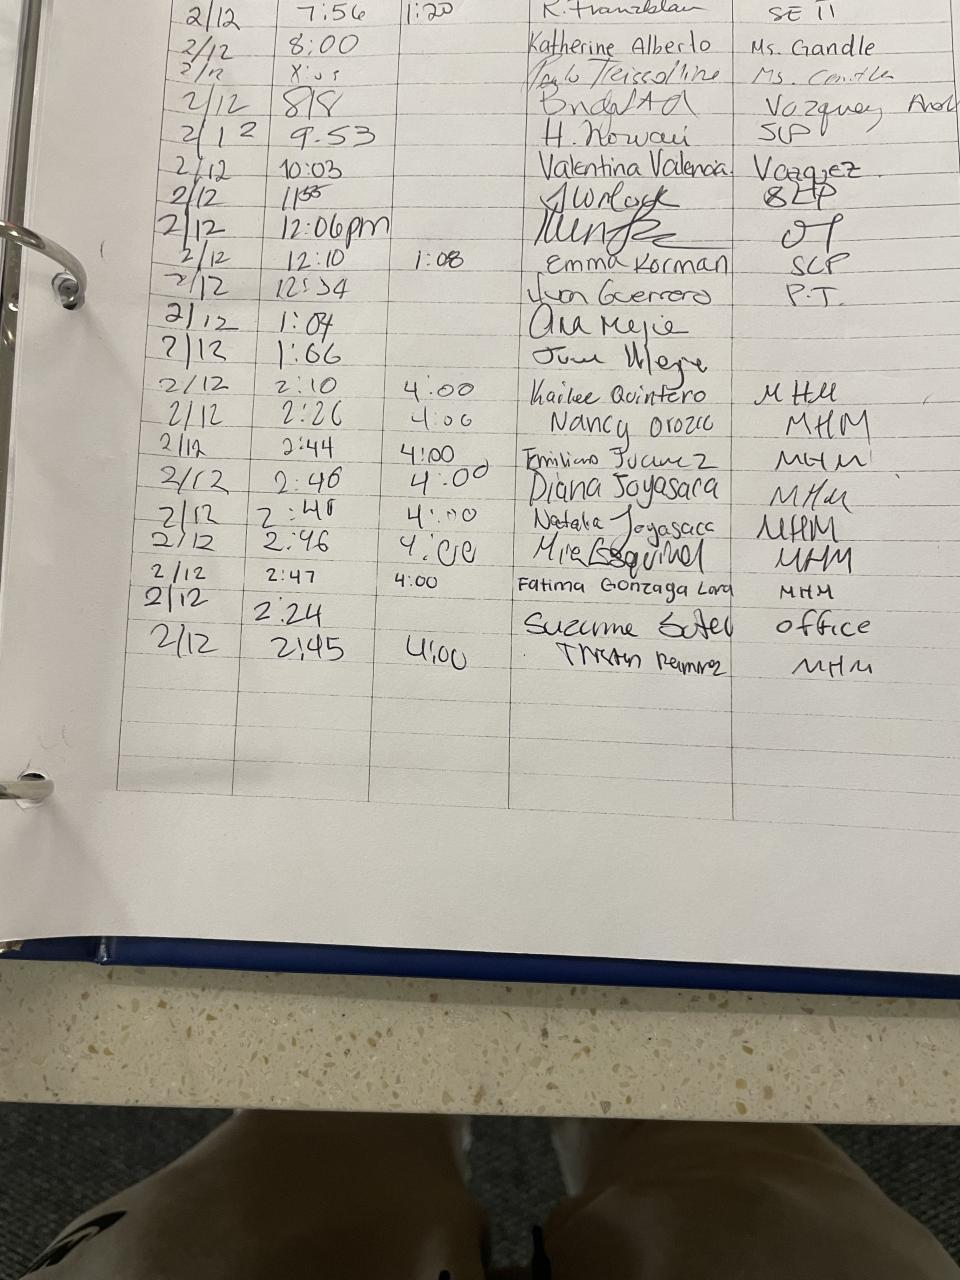 2/12 7:56 1:20 K. Franzblau SE II
2/12 8:00 Katherine Alberto Ms. Gandle
2/12 Ms.
2/12 8/8 Vazquez
2/12 9.53 H. SLP
2/12 10:03 Valentina Valencia Vazquez
2/12 1155 SLP
2/12 12:06pm OT
2/12 12:10 1:08 Emma Korman SLP
2/12 12:34 Juan Guerrero P.T.
2/12 1:04 Ana Mejie
2/12 1:06
2/12 2:10 4:00 Kailee Quintero MHM
2/12 2:26 4:00 Nancy Orozco MHM
2/12 2:44 4:00 Emiliano Juarez MHM
2/12 2:46 4:00 Diana Joyasaca MHM
2/12 2:46 4:00 Natalia Joyasaca MHM
2/12 2:46 4:00 Esquivel MHM
2/12 2:47 4:00 Fatima Gonzaga Lara MHM
2/12 2:24 Suzanne Sotel office
2/12 2:45 4:00 Tristan Ramirez MHM